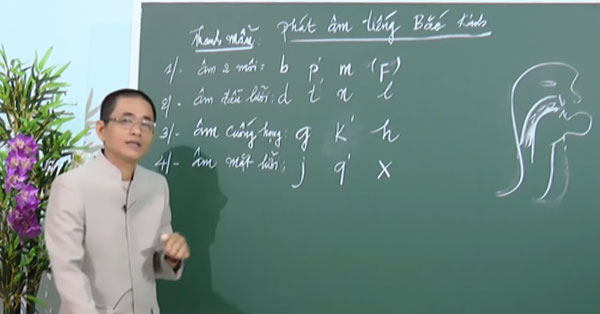 Thanh mẫu: Phát âm tiếng Bắc Kinh
1/- âm 2 môi: b p' m (F)
2/- âm đầu lưỡi: d t' n l
3/- âm cuống họng: g k' h
4/- âm mặt lưỡi: j q' x